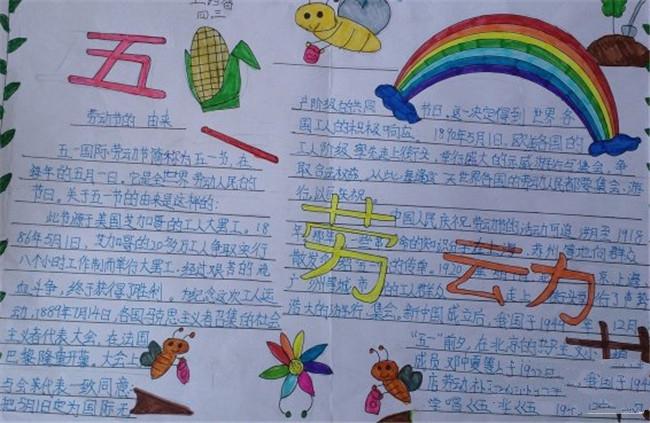 四三
五
劳动节的 由来
五一国际劳动节简称为五一节，在
每年的五月一日。它是全世界劳动人民的
节日。关于五一节的由来是这样的：
此节源于美国芝加哥的工人大罢工。18
86年5月1日，芝加哥的20多万工人争取实行
八个小时工作制而举行大罢工，经过艰苦的流
血斗争，终于获得了胜利。为纪念这次工人运
动，1889年7月14日，各国马克思主义者召集的社会
主义者代表大会，在法国
巴黎隆重开幕。大会上
与会代表一致同意：
把5月1日定为国际无
产阶级的共同 节日。这一决定得到 世界各
国工人的积极响应。1890年5月1日，欧美各国的
工人阶级 率先走上街头，举行盛大的示威游行与集会，争
取合法权益。从此，每逢这一天世界各国的劳动人民都要集会、游
行，以示庆祝。
劳动
中国人民庆祝劳动节的活动可追溯至1918
年 一些 命的知识分子在上海 苏州等地向群众
散发 的传单。1920年 北京、上海
广州 城市 的工人群众 走上街头 了声势
浩大的游行、集会。新中国成立后，我国于1949年12月
“五一”前夕，在北京的共产主义小
成员邓中夏等人于
我国于194